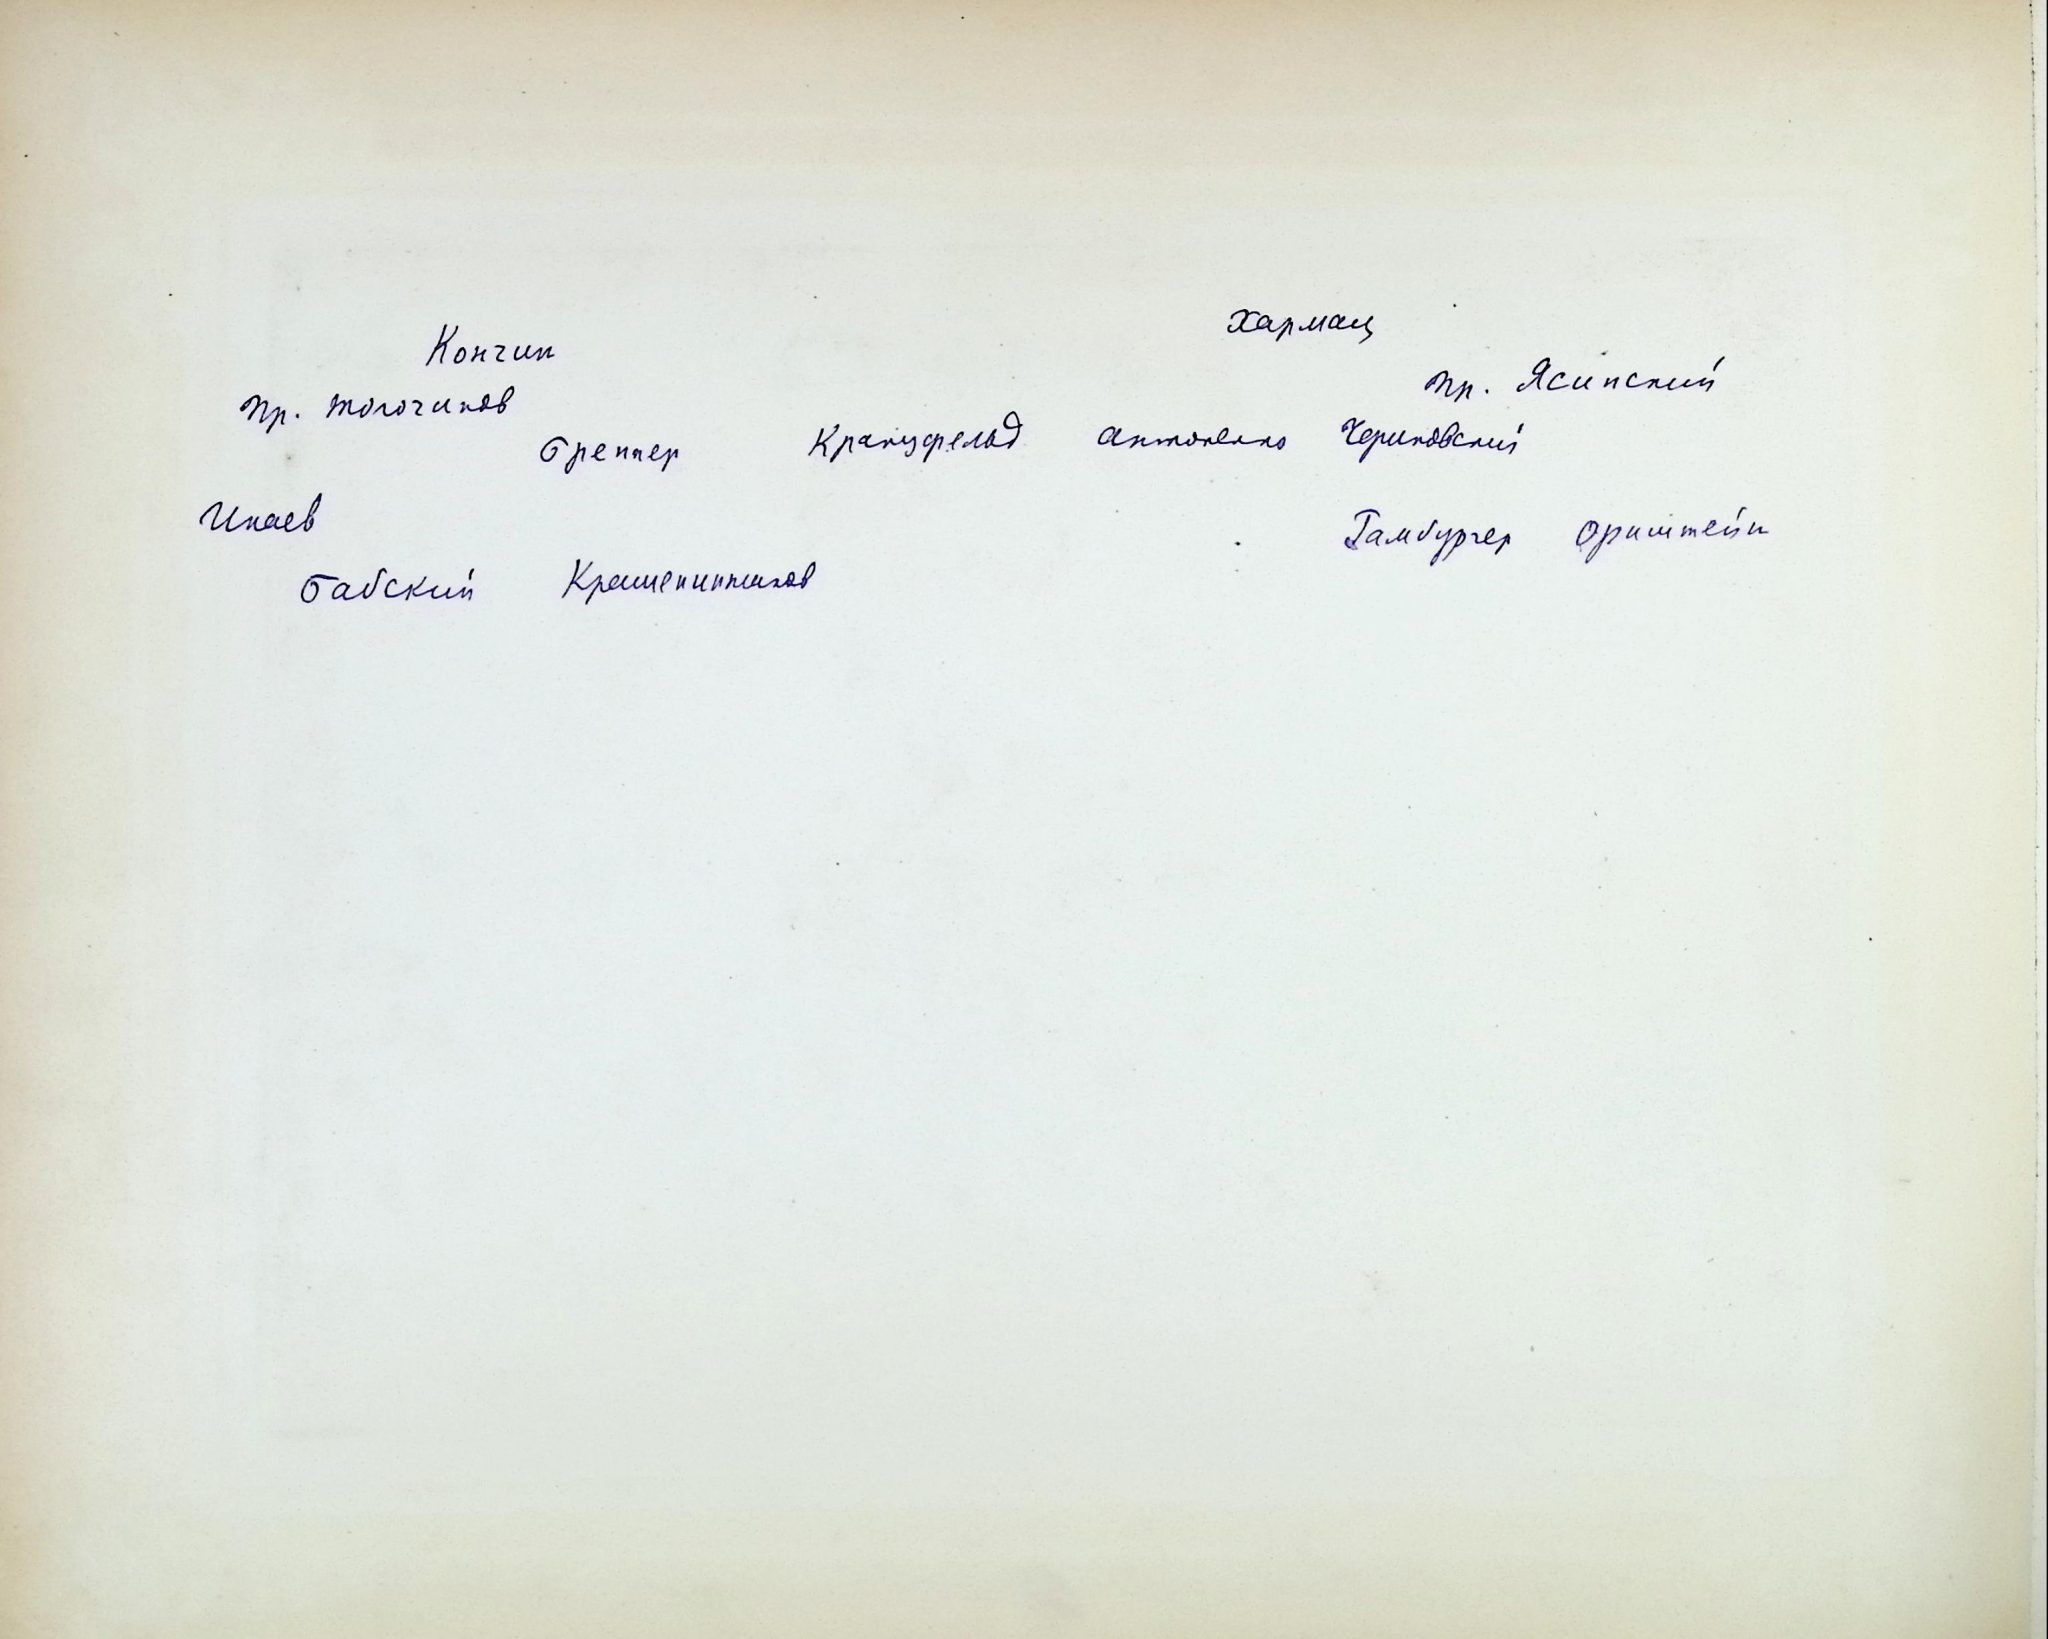 Кончин Хармац
Пр. Толочинов Пр. Ясинский
Бреннер Кранцфельд Антоненко Чериковский
Инаев Гамбургер Орнштейн
Бабский Крашенинников